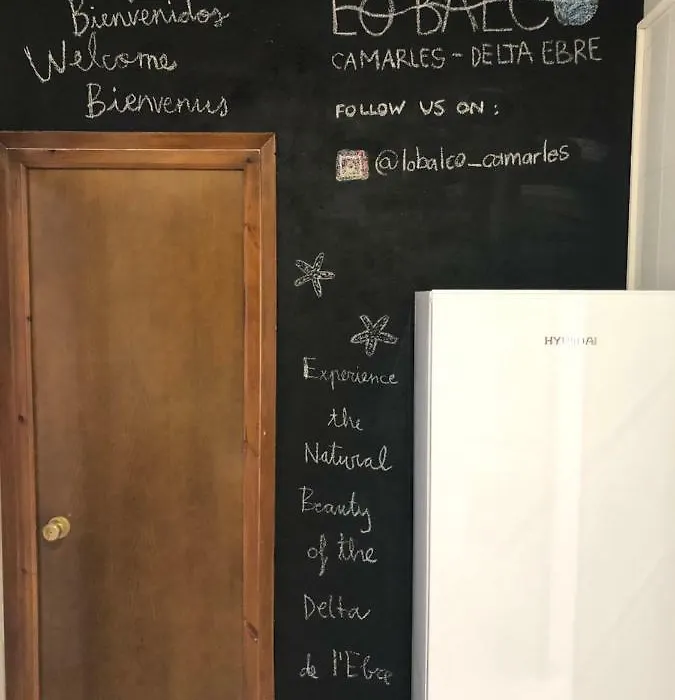 Bienvenidos
Welcome
Bienvenus
LO BALCÓ
CAMARLES - DELTA EBRE
FOLLOW US ON :
@lobalco_camarles
Experience
the
Natural
Beauty
of the
Delta
de l'Ebre
HYUNDAI